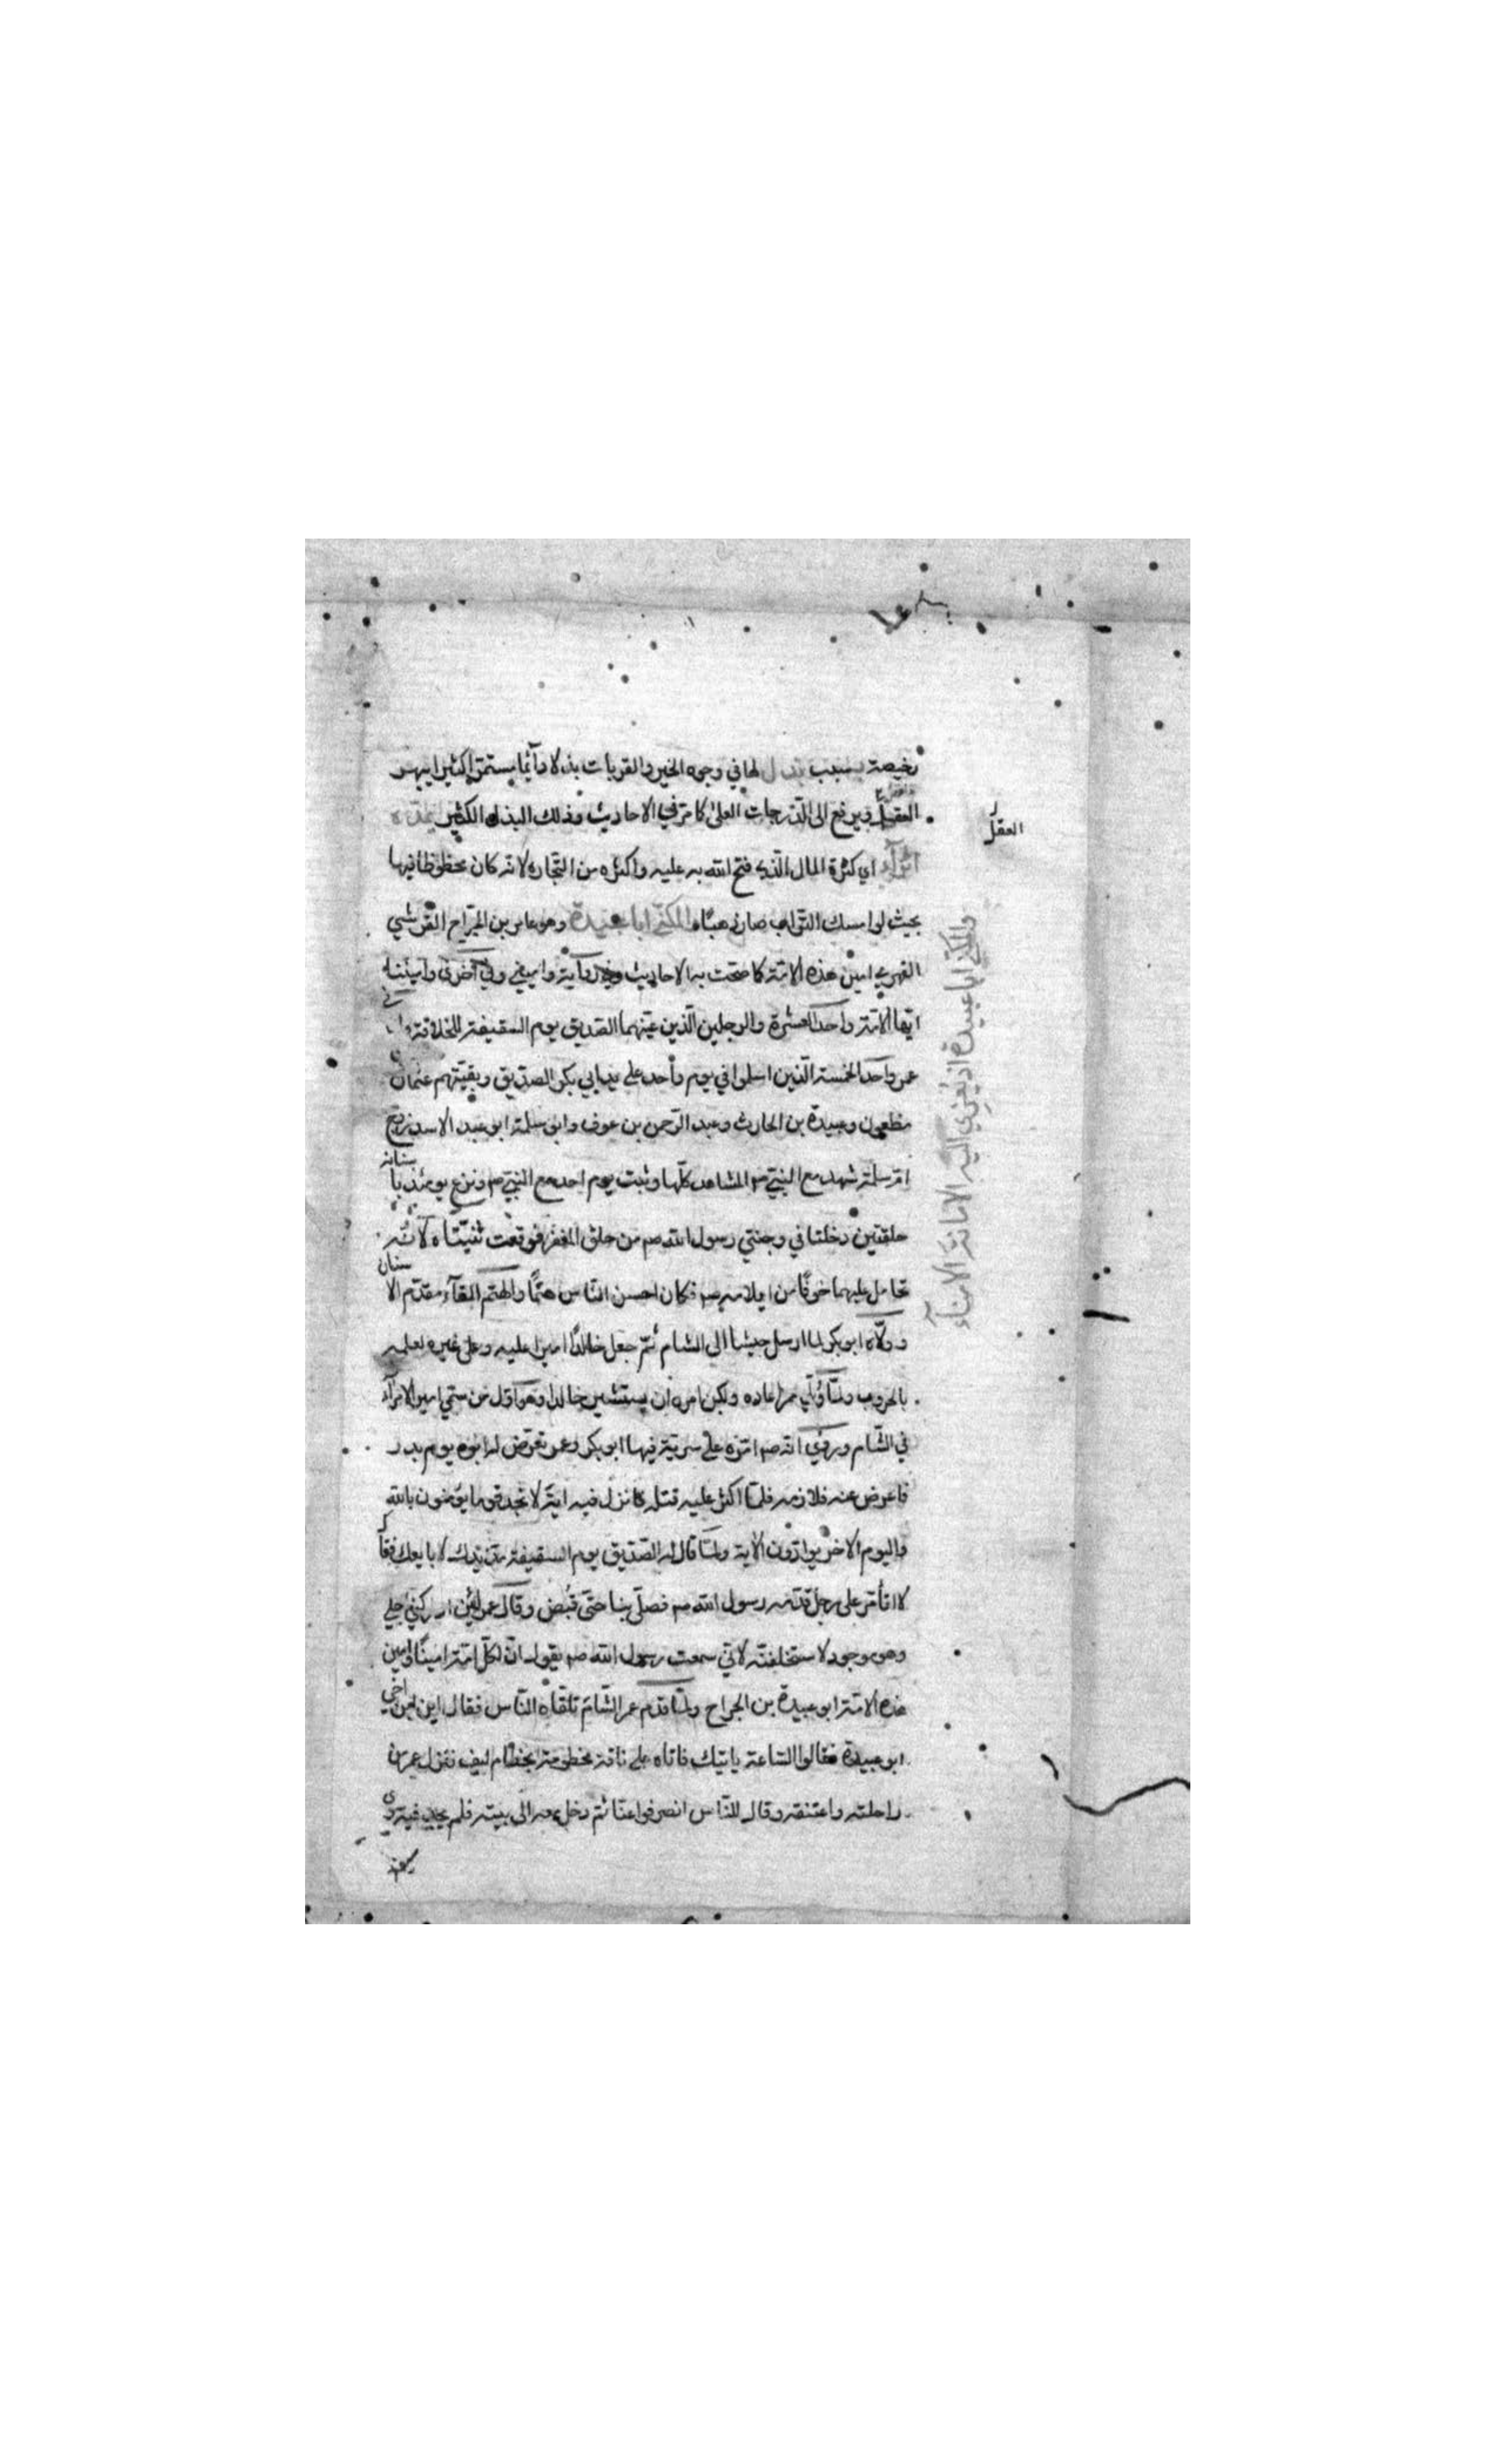 رخيصة بسبب بذل لها في وجوه الخير والقربات بذلا دائما يستمر اكثيرا يبهر
العقل ويرفع الى الدرجات العلى كما مر في الاحاديث وذلك البذل الكثير يمده
اثراء اي كثرة المال الذي فتح الله به عليه واكثره من التجارة لانه كان محظوظا فيها
بحيث لو امسك التراب صار ذهبا والمكنى ابا عبيدة وهو عامر بن الجراح القرشي
الفهري امين هذه الامة كما صحت به الاحاديث وفي رواية واميني وفي اخرى واميننا
ايتها الامة واحد العشرة والرجلين الذين عينهما الصديق يوم السقيفة للخلافة
عمر واحد الخمسة الذين اسلموا في يوم واحد على يد ابي بكر الصديق وبقيتهم عثمان
مظعون وعبيدة بن الحارث وعبد الرحمن بن عوف وابو سلمة ابو عبد الاسد زوج
ام سلمة شهد مع النبي صم المشاهد كلها وثبت يوم احد مع النبي صم ونزع يومئذ باسنانه
حلقتين دخلتا في وجنتي رسول الله صم من حلق المغفر فوقعت ثنيتاه لانه
تحامل عليهما خوفا من ايلامه صم فكان احسن الناس هتما والهتم القاء مقدم الاسنان
وولاه ابو بكر لما ارسل جيشا الى الشام ثم جعل خالدا اميرا عليه وعلى غيره لعلمه
بالحروب ولما ولي عمر اعاده ولكن امره ان يستشير خالدا وهو اول من سمي امير الامراء
في الشام وروي انه صم امره على سرية فيها ابو بكر وعمر تعرض له ابوه يوم بدر
فاعرض عنه فلازمه فلما اكثر عليه قتله فانزل فيه اية لا تجد قوما يؤمنون بالله
واليوم الاخر يوادون الاية ولما قال له الصديق يوم السقيفة مد يدك لابايعك فقال
لا اتأمر على رجل قدمه رسول الله صم فصلى بنا حتى قبض وقال عمر لئن ادركني اجلي
وهو موجود لاستخلفته لاني سمعت رسول الله صم يقول ان لكل امة امينا وامين
هذه الامة ابو عبيدة بن الجراح ولما قدم عمر الشام تلقاه الناس فقال اين اخي
ابو عبيدة فقالوا الساعة ياتيك فاتاه على ناقة مخطومة بخطام ليف فنزل عمر من
راحلته واعتنقه وقال للناس انصرفوا عنا ثم دخل عمر الى بيته فلم يجد فيه
العقل
والمكنى ابا عبيدة اذ يعزي اليه الامانة الامناء